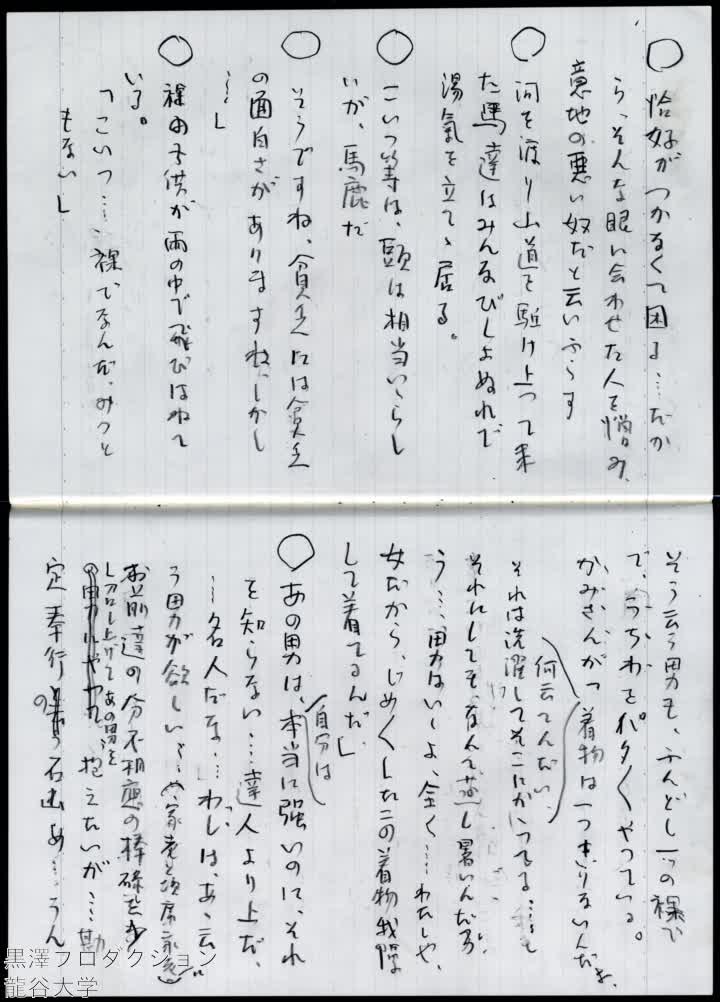 〇 恰好がつかなくて困る…だか
ら、そんな眼に会わせた人を悩み、
意地の悪い奴だと云いふらす
〇 河を渡り山道を駈け上って来
た馬達はみんなびしょぬれで
湯氣を立てゝ居る。
〇 こいつ等は、頭は相当いゝらし
いが、馬鹿だ
〇 そうですね、貧乏には貧乏
の面白さがありますね、しかし
…」
〇 裸の子供が雨の中で飛びはねて
いる。
「こいつ……裸でなんだ、みっと
もない」
そう云う男も、ふんどし一つの裸で
で、うちわをパタ〱やっている。
かみさんが「着物は一つきりないんだよ、
何云ってんだい、
それは洗濯してそこにかゝってる……
それにしてもなんて蒸し暑いんだろ
う…男はいゝよ、全く……わたしや、
女だから、じめ〱したこの着物我慢
して着てるんだ」
〇 あの男は、本当に強いのに、それ
自分は
を知らない…達人より上だ、
…名人だな…わしは、あゝ云
う男が欲しい
お前達の分不相應の棒碌を少
し召し上げてあの男を
抱えたいが……勘
定奉行の石山め…うん
黒澤プロダクション
龍谷大学